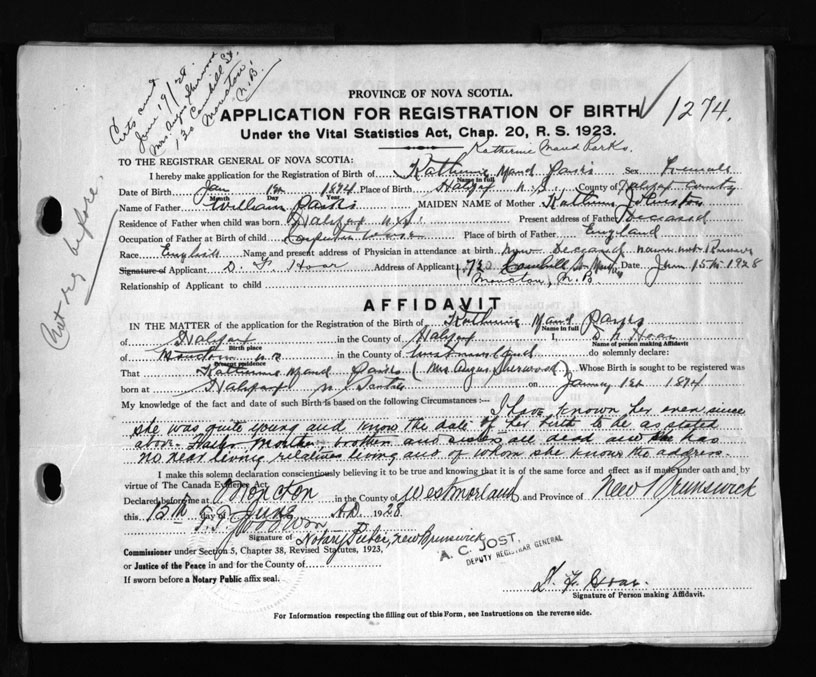 June 19/28
Mrs Angus Sherwood
130 Cornhill St.
Moncton
N.B.
Not reg before.
PROVINCE OF NOVA SCOTIA.
APPLICATION FOR REGISTRATION OF BIRTH 1274.
Under the Vital Statistics Act, Chap. 20, R. S. 1923.
Katherine Maud Parks.
TO THE REGISTRAR GENERAL OF NOVA SCOTIA:
I hereby make application for the Registration of Birth of Katherine Maud Parks Sex Female
Name in full
Date of Birth Jan 1st 1894 Place of Birth Halifax N.S., County of Halifax County
Month Day Year
Name of Father William Parks MAIDEN NAME of Mother Katherine Johnston
Residence of Father when child was born Halifax N.S. Present address of Father Deceased
Occupation of Father at Birth of child Carpenter Place of birth of Father England
Race English Name and present address of Physician in attendance at birth now Deceased name not Known
Signature of Applicant D. F. Hoar Address of Applicant Cornhill St Date June 15th 1928
Moncton, N.B
Relationship of Applicant to child
AFFIDAVIT
IN THE MATTER of the application for the Registration of the Birth of Katherine Maud Parks
Name in full
of Halifax in the County of Halifax I, Hoar
Birth place Name of person making Affidavit
of Moncton N.B in the County of Westmorland do solemnly declare:
Present residence
That Katherine Maud Parks (Mrs. Angus Sherwood) Whose Birth is sought to be registered was
born at Halifax N. Scotia on January 1st 1894
My knowledge of the fact and date of such Birth is based on the following Circumstances :— I have known her ever since
she was quite young and know the date of her birth to be as stated
above. Mother brothers and sisters are dead and she has
no near living relatives living and of whom she knows the address.
I make this solemn declaration conscientiously believing it to be true and knowing that it is of the same force and effect as if made under oath and by
virtue of The Canada Evidence Act.
Declared before me at Moncton in the County of Westmorland and Province of New Brunswick
this 15th day of June A.D. 1928
Signature of Notary Public, New Brunswick
Commissioner under Section 5, Chapter 38, Revised Statutes, 1923,
or Justice of the Peace in and for the County of
If sworn before a Notary Public affix seal.
A. C. JOST,
DEPUTY REGISTRAR GENERAL
D. F. Hoar.
Signature of Person making Affidavit.
For Information respecting the filling out of this Form, see Instructions on the reverse side.